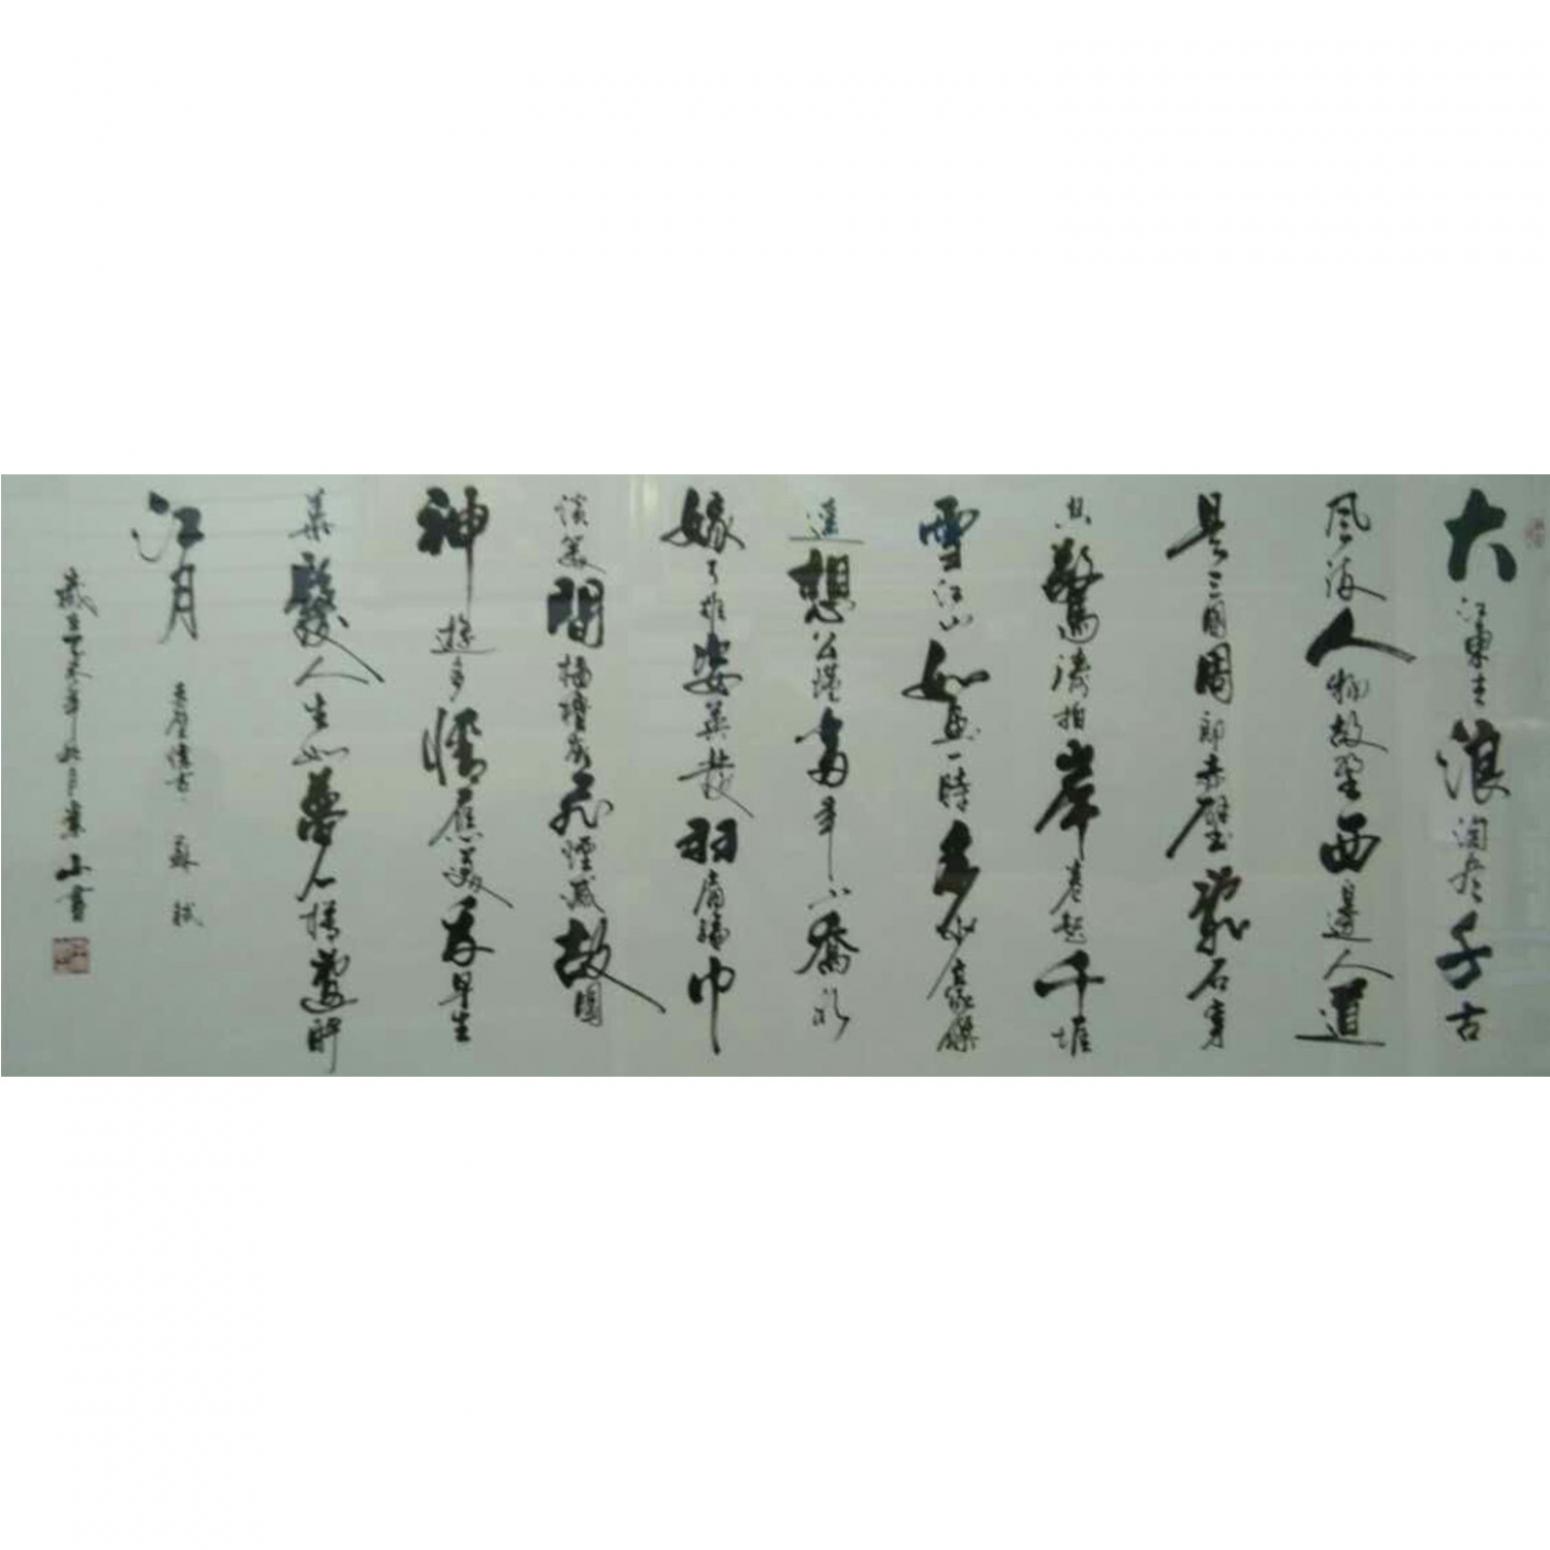 大江東去浪淘盡千古
風流人物故壘西邊人道
是三國周郎赤壁亂石穿
空驚濤拍岸卷起千堆
雪江山如畫一時多少豪傑
遥想公瑾當年小喬初
嫁了雄姿英發羽扇綸巾
談笑間檣櫓灰飛煙滅故國
神遊多情應笑我早生
華髮人生如夢一樽還酹
江月 赤壁懷古 蘇軾
歲在年山書